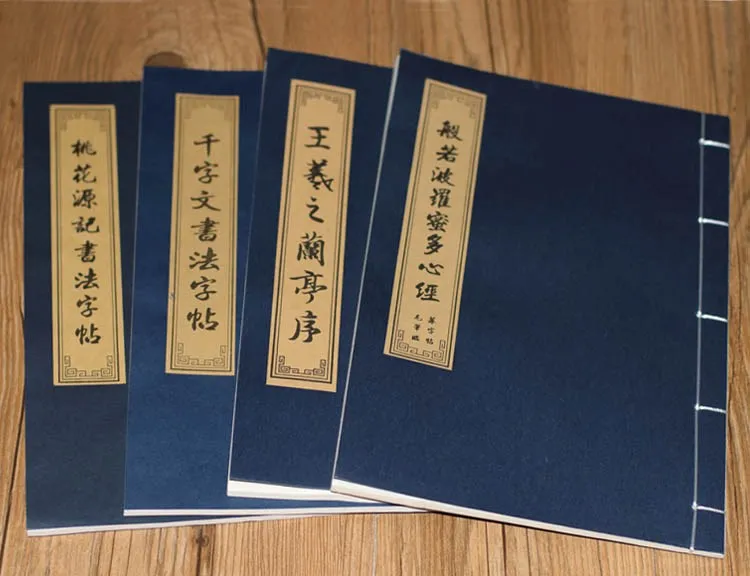 桃花源記書法字帖
千字文書法字帖
王羲之蘭亭序
般若波羅蜜多心經
毛筆臨
摹字帖